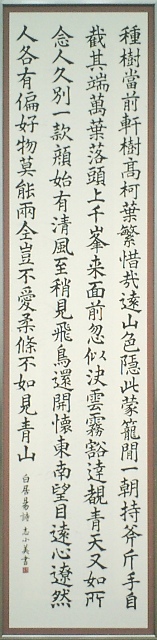 種樹當前軒樹高柯葉繁惜哉遠山色隱此蒙籠間一朝持斧斤手自
截其端萬葉落頭上千峯来面前忽似決雲霧豁達覩青天又如所
念人久別一款顔始有清風至稍見飛鳥還開懷東南望目遠心遼然
人各有偏好物莫能兩全豈不愛柔條不如見青山
白居易詩 志小美書